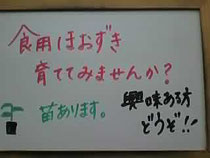 食用ほおずき
育ててみませんか?
苗あります。
興味ある方
どうぞ!!